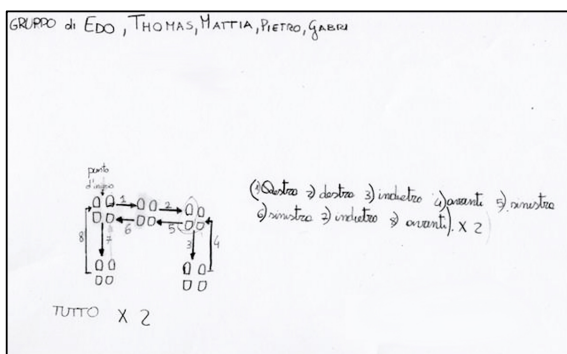 GRUPPO di EDO, THOMAS, MATTIA, PIETRO, GABRI
punto
d'inizio
1 2
6 5
8 7 3 4
(1) Destra 2) destra 3) indietro 4) avanti 5) sinistra
6) sinistra 7) indietro 8) avanti). X 2
TUTTO X 2